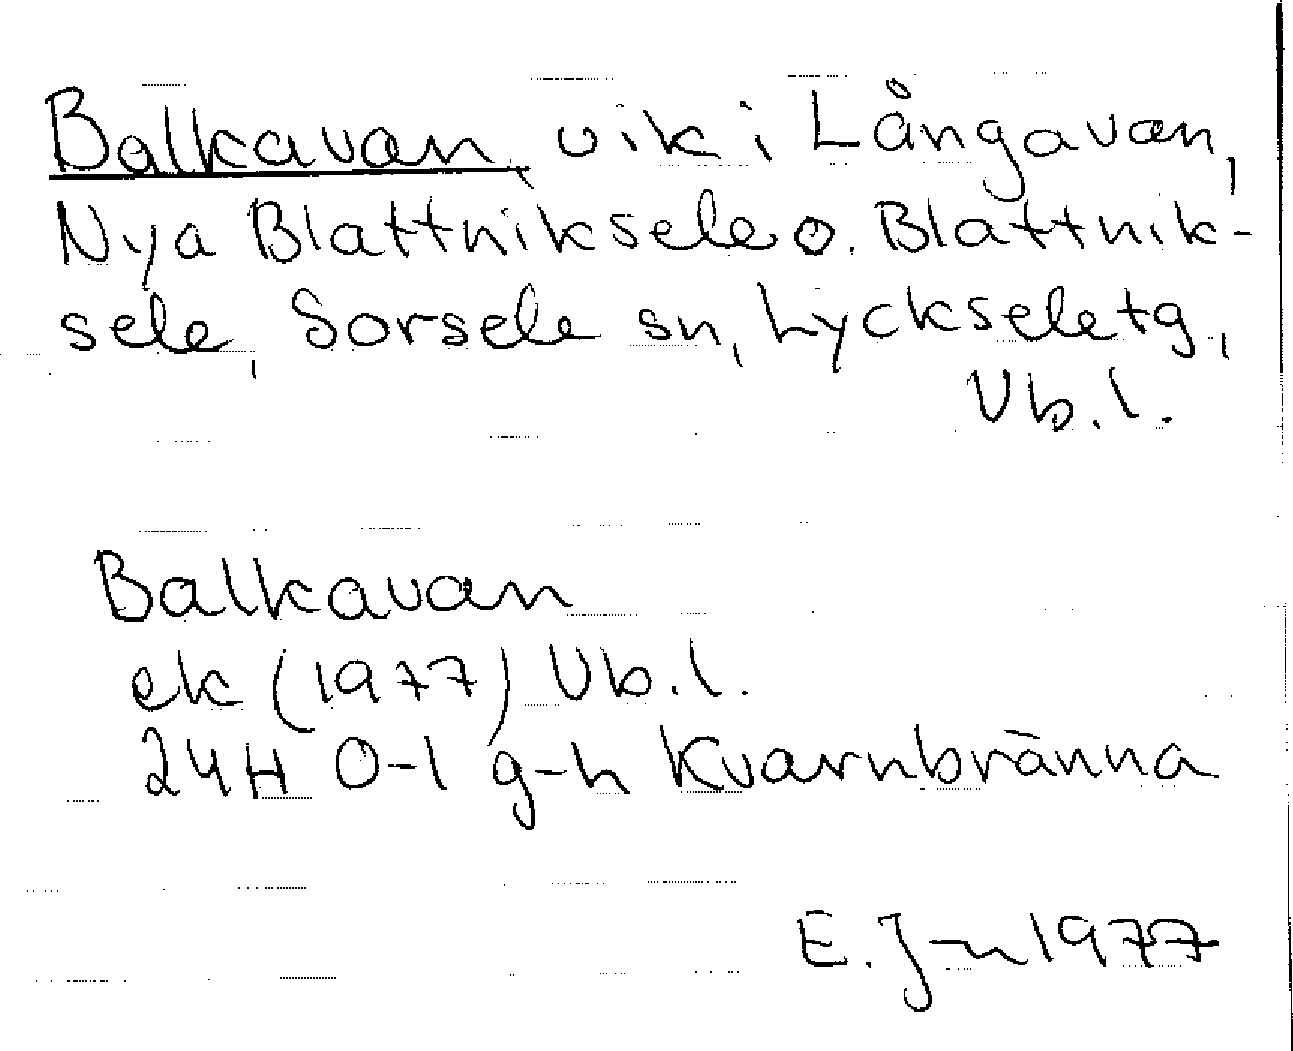 Balkavan, vik i Långavan,
Nya Blattniksele o. Blattnik-
sele, Sorsele sn, Lyckseletg,
Vb.l.
Balkavan
ek (1977) Vb.l.
24H 0-1 g-h Kvarnbränna
E. J-n 1977